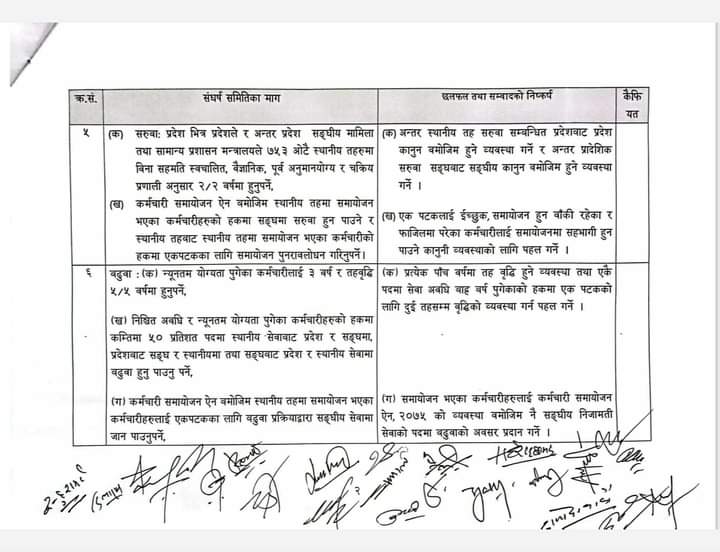 क्र.सं. संघर्ष समितिका माग छलफल तथा सम्वादको निष्कर्ष कैफि
यत
५ (क) सरुवा: प्रदेश भित्र प्रदेशले र अन्तर प्रदेश सङ्घीय मामिला
तथा सामान्य प्रशासन मन्त्रालयले ७५३ ओटै स्थानीय तहरुमा
बिना सहमति स्वचालित, वैज्ञानिक, पूर्व अनुमानयोग्य र चक्रिय
प्रणाली अनुसार २/२ वर्षमा हुनुपर्ने,
(ख) कर्मचारी समायोजन ऐन बमोजिम स्थानीय तहमा समायोजन
भएका कर्मचारीहरुको हकमा सङ्घमा सरुवा हुन पाउने र
स्थानीय तहबाट स्थानीय तहमा समायोजन भएका कर्मचारीको
हकमा एकपटकका लागि समायोजन पुनरावलोधन गरिनुपर्ने।
(क) अन्तर स्थानीय तह सरुवा सम्बन्धित प्रदेशबाट प्रदेश
कानुन बमोजिम हुने व्यवस्था गर्ने र अन्तर प्रादेशिक
सरुवा सङ्घबाट सङ्घीय कानुन बमोजिम हुने व्यवस्था
गर्ने ।
(ख) एक पटकलाई ईच्छुक, समायोजन हुन बाँकी रहेका र
फाजिलमा परेका कर्मचारीलाई समायोजनमा सहभागी हुन
पाउने कानुनी व्यवस्थाको लागि पहल गर्ने ।
६ बढुवा : (क) न्यूनतम योग्यता पुगेका कर्मचारीलाई ३ वर्ष र तहवृद्धि
५/५ वर्षमा हुनुपर्ने,
(ख) निश्चित अवधि र न्यूनतम योग्यता पुगेका कर्मचारीहरुको हकमा
कम्तिमा ५० प्रतिशत पदमा स्थानीय सेवाबाट प्रदेश र सङ्घमा,
प्रदेशबाट सङ्घ र स्थानीयमा तथा सङ्घबाट प्रदेश र स्थानीय सेवामा
बढुवा हुनु पाउनु पर्ने,
(ग) कर्मचारी समायोजन ऐन बमोजिम स्थानीय तहमा समायोजन भएका
कर्मचारीहरुलाई एकपटकका लागि बढुवा प्रक्रियाद्वारा सङ्घीय सेवामा
जान पाउनुपर्ने,
(क) प्रत्येक पाँच वर्षमा तह वृद्धि हुने व्यवस्था तथा एकै
पदमा सेवा अवधि बाह्र वर्ष पुगेकाको हकमा एक पटकको
लागि दुई तहसम्म वृद्धिको व्यवस्था गर्न पहल गर्ने ।
(ग) समायोजन भएका कर्मचारीहरुलाई कर्मचारी समायोजन
ऐन, २०७५ को व्यवस्था बमोजिम नै सङ्घीय निजामती
सेवाको पदमा बढुवाको अवसर प्रदान गर्ने ।